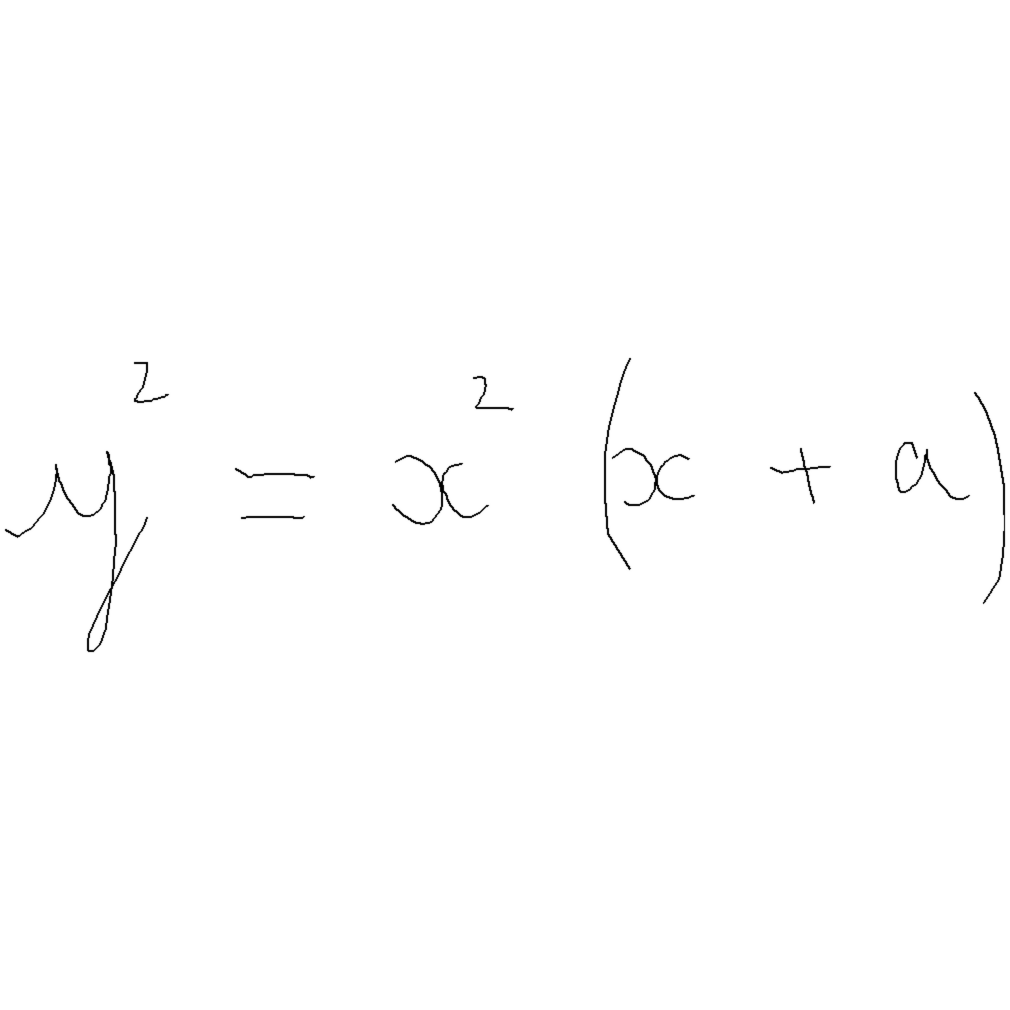 y² = x² (x + a)